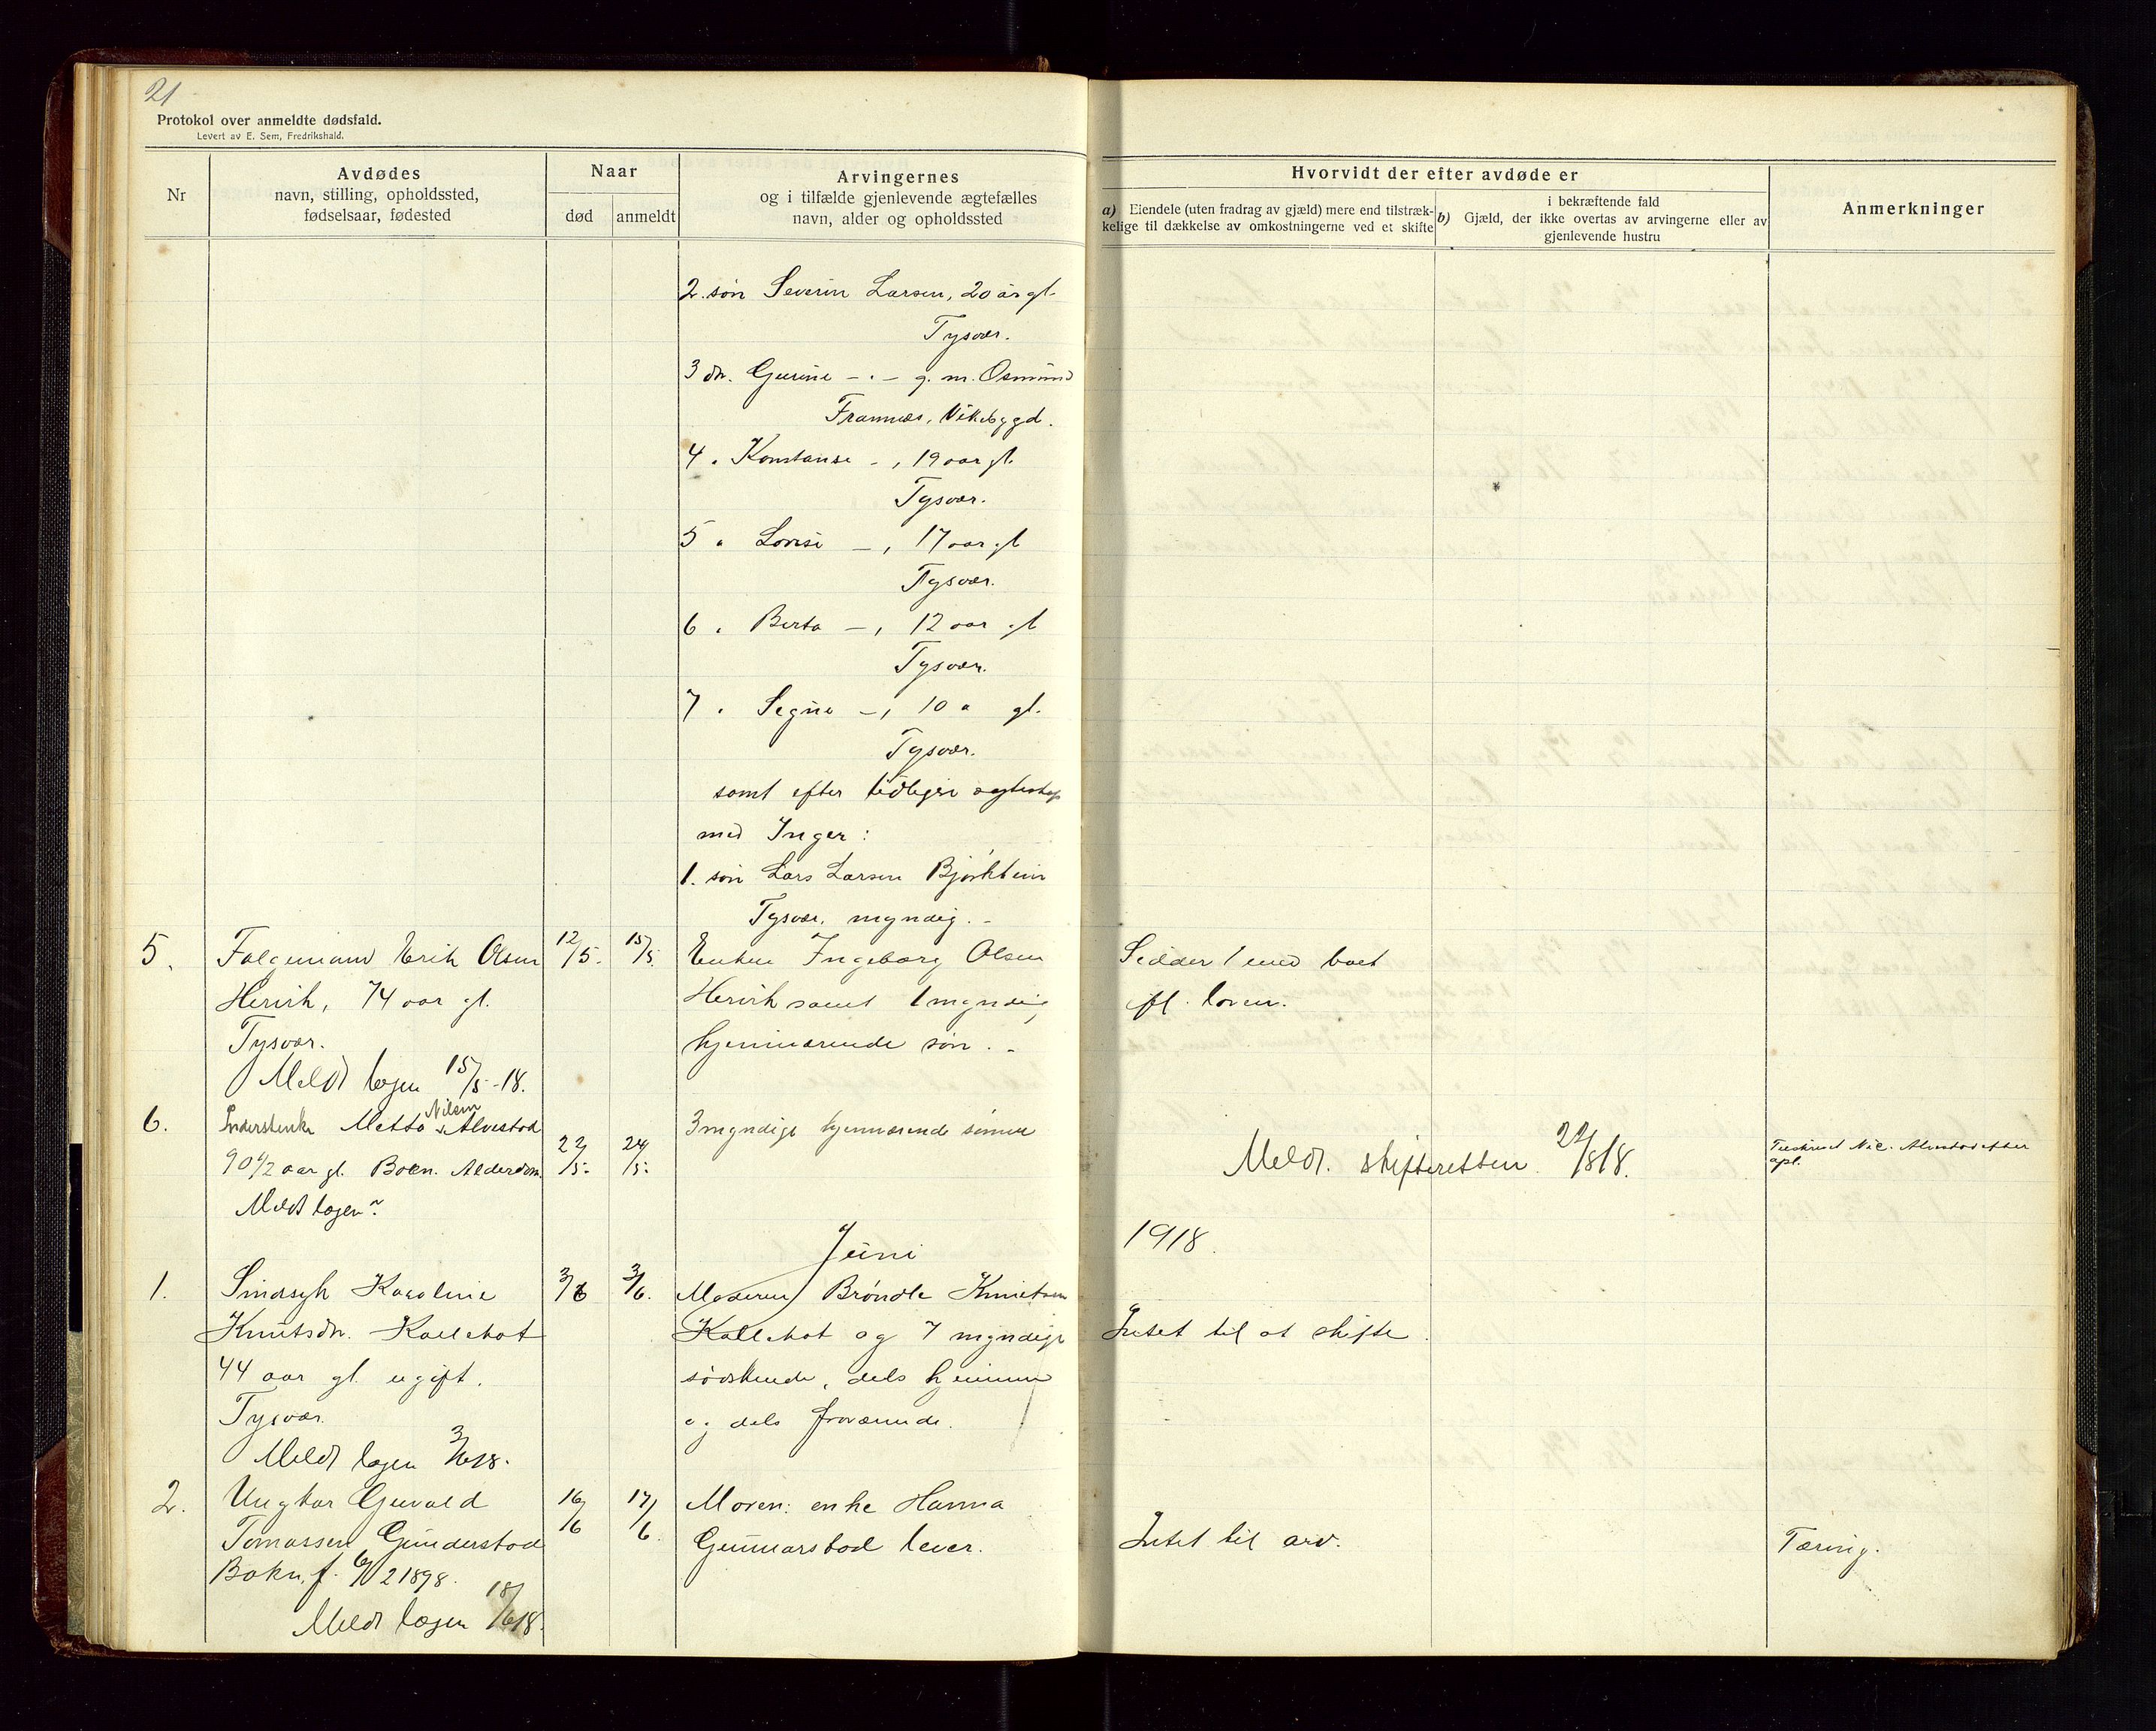 21
Protokol over anmeldte dødsfald.
Levert av E. Sem, Fredrikshald.
Nr
Avdødes
navn, stilling, opholdssted,
fødselsaar, fødested
Naar
død
anmeldt
Arvingernes
og i tilfælde gjenlevende ægtefælles
navn, alder og opholdssted
Hvorvidt der efter avdøde er
a) Eiendele (uten fradrag av gjæld) mere end tilstræk-
kelige til dækkelse av omkostningerne ved et skifte
i bekræftende fald
b) Gjæld, der ikke overtas av arvingerne eller av
gjenlevende hustru
Anmerkninger
2. søn Severin Larsen, 20 år gl.
Tysvær.
3 dr. Gurine -"- g. m. Osmund
Framnæs, Vikebygd.
4 " Konstanse -, 19 aar gl.
Tysvær.
5 " Lovise -, 17 aar gl
Tysvær.
6 " Berta -, 12 aar gl
Tysvær.
7 " Signe -, 10 " gl.
Tysvær.
samt efter tidligere ægteskap
med Inger:
1. søn Lars Larsen
Tysvær, myndig. -
5. Folgemand Erik Olsen 12/5. 15/5. Enken Ingeborg Olsen Sidder i med boet
Hervik, 74 aar gl. Hervik samt 1 myndig ifl. loven.
Tysvær. hjemmærende søn. -
Meldt lægen 15/5-18.
6. Metta Nilsen Alvestad 22/5- 24/5- 3 myndige hjemværende sønner
90 1/2 aar gl. Boen. Alderdom. Meldt. skifteretten 22/818. Alvestad efter
Meldt lægen ".
Juni 1918.
1. Sindsyk Karoline 3/6 3/6. Moderen Brøndle Knutsen
Knutsdr. Kallekot Kallekot og 7 myndige Intet til at skifte.
44 aar gl. ugift. søskende, dels hjemme
Tysvær. og dels fraværende.
Meldt lægen 3/618.
2. Ungkar Guvald 16/6 17/6. Moren: enke Hanna
Tomassen Gunderstad Gunnarstad lever. Intet til arv. Tæring.
Bokn, f. 6/2 1898.
Meldt lægen 18/618.